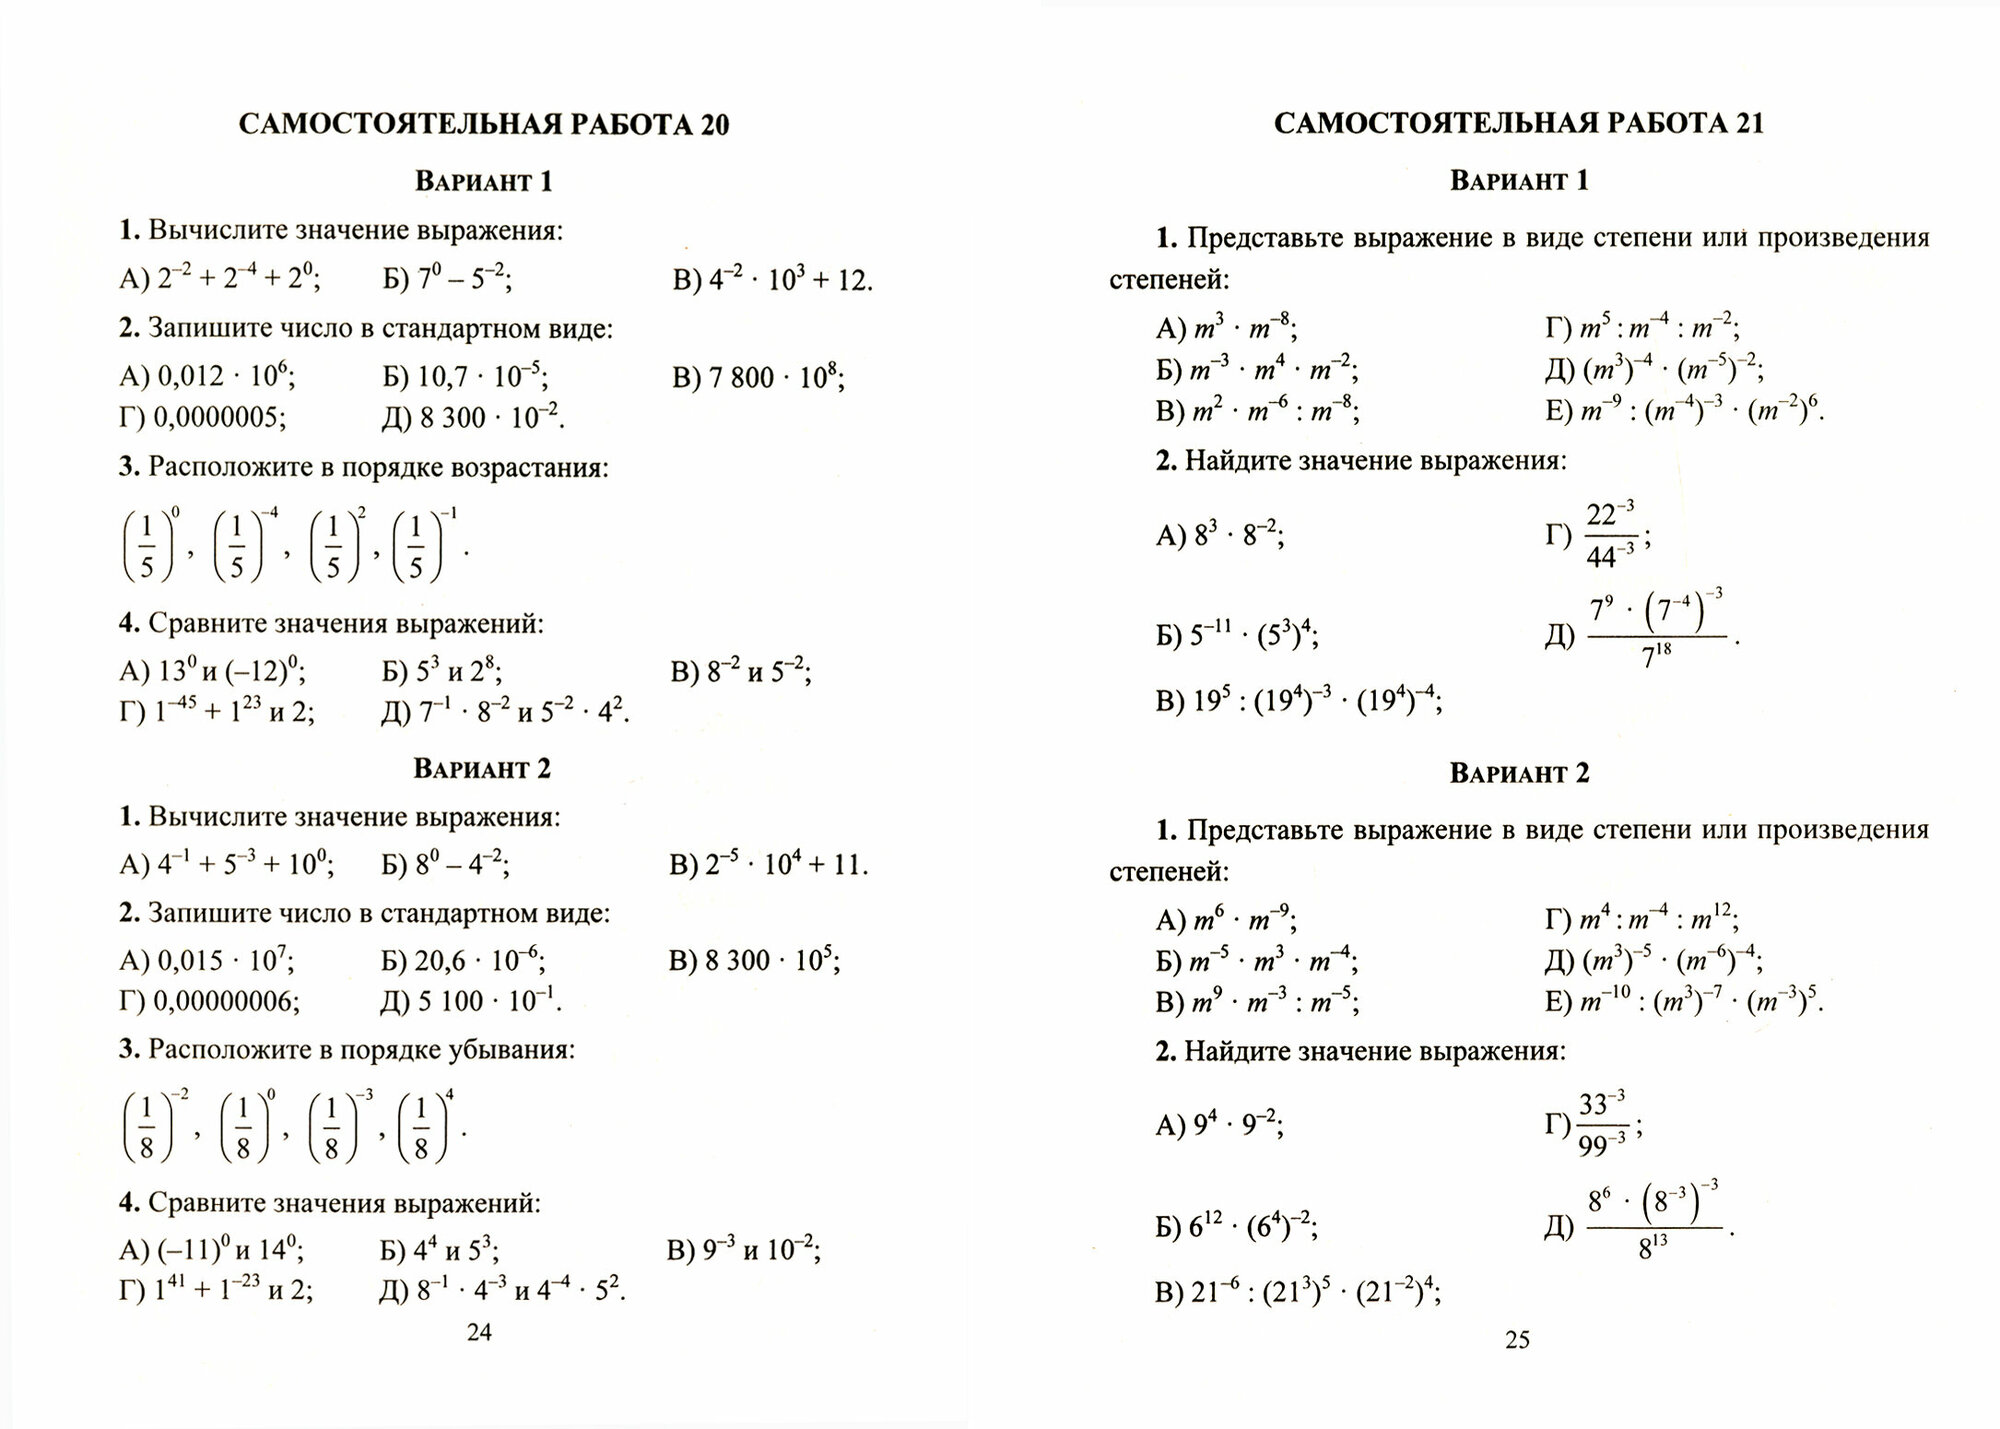 САМОСТОЯТЕЛЬНАЯ РАБОТА 20
ВАРИАНТ 1
1. Вычислите значение выражения:
А) 2⁻² + 2⁻⁴ + 2⁰; Б) 7⁰ – 5⁻²; В) 4⁻² · 10³ + 12.
2. Запишите число в стандартном виде:
А) 0,012 · 10⁶; Б) 10,7 · 10⁻⁵; В) 7 800 · 10⁸;
Г) 0,0000005; Д) 8 300 · 10⁻².
3. Расположите в порядке возрастания:
(1/5)⁰, (1/5)⁻⁴, (1/5)², (1/5)⁻¹.
4. Сравните значения выражений:
А) 13⁰ и (–12)⁰; Б) 5³ и 2⁸; В) 8⁻² и 5⁻²;
Г) 1⁻⁴⁵ + 1²³ и 2; Д) 7⁻¹ · 8⁻² и 5⁻² · 4².
ВАРИАНТ 2
1. Вычислите значение выражения:
А) 4⁻¹ + 5⁻³ + 10⁰; Б) 8⁰ – 4⁻²; В) 2⁻⁵ · 10⁴ + 11.
2. Запишите число в стандартном виде:
А) 0,015 · 10⁷; Б) 20,6 · 10⁻⁶; В) 8 300 · 10⁵;
Г) 0,00000006; Д) 5 100 · 10⁻¹.
3. Расположите в порядке убывания:
(1/8)⁻², (1/8)⁰, (1/8)⁻³, (1/8)⁴.
4. Сравните значения выражений:
А) (–11)⁰ и 14⁰; Б) 4⁴ и 5³; В) 9⁻³ и 10⁻²;
Г) 1⁴¹ + 1⁻²³ и 2; Д) 8⁻¹ · 4⁻³ и 4⁻⁴ · 5².
24
САМОСТОЯТЕЛЬНАЯ РАБОТА 21
ВАРИАНТ 1
1. Представьте выражение в виде степени или произведения
степеней:
А) m³ · m⁻⁸; Г) m⁵ : m⁻⁴ : m⁻²;
Б) m⁻³ · m⁴ · m⁻²; Д) (m³)⁻⁴ · (m⁻⁵)⁻²;
В) m² · m⁻⁶ : m⁻⁸; Е) m⁻⁹ : (m⁻⁴)⁻³ · (m⁻²)⁶.
2. Найдите значение выражения:
А) 8³ · 8⁻²; Г) 22⁻³/44⁻³;
Б) 5⁻¹¹ · (5³)⁴; Д) 7⁹ · (7⁻⁴)⁻³/7¹⁸.
В) 19⁵ : (19⁴)⁻³ · (19⁴)⁻⁴;
ВАРИАНТ 2
1. Представьте выражение в виде степени или произведения
степеней:
А) m⁶ · m⁻⁹; Г) m⁴ : m⁻⁴ : m¹²;
Б) m⁻⁵ · m³ · m⁻⁴; Д) (m³)⁻⁵ · (m⁻⁶)⁻⁴;
В) m⁹ · m⁻³ : m⁻⁵; Е) m⁻¹⁰ : (m³)⁻⁷ · (m⁻³)⁵.
2. Найдите значение выражения:
А) 9⁴ · 9⁻²; Г) 33⁻³/99⁻³;
Б) 6¹² · (6⁴)⁻²; Д) 8⁶ · (8⁻³)⁻³/8¹³.
В) 21⁻⁶ : (21³)⁵ · (21⁻²)⁴;
25